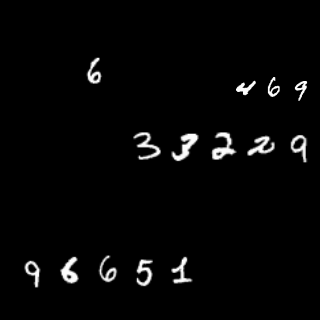 6
469
33229
96651